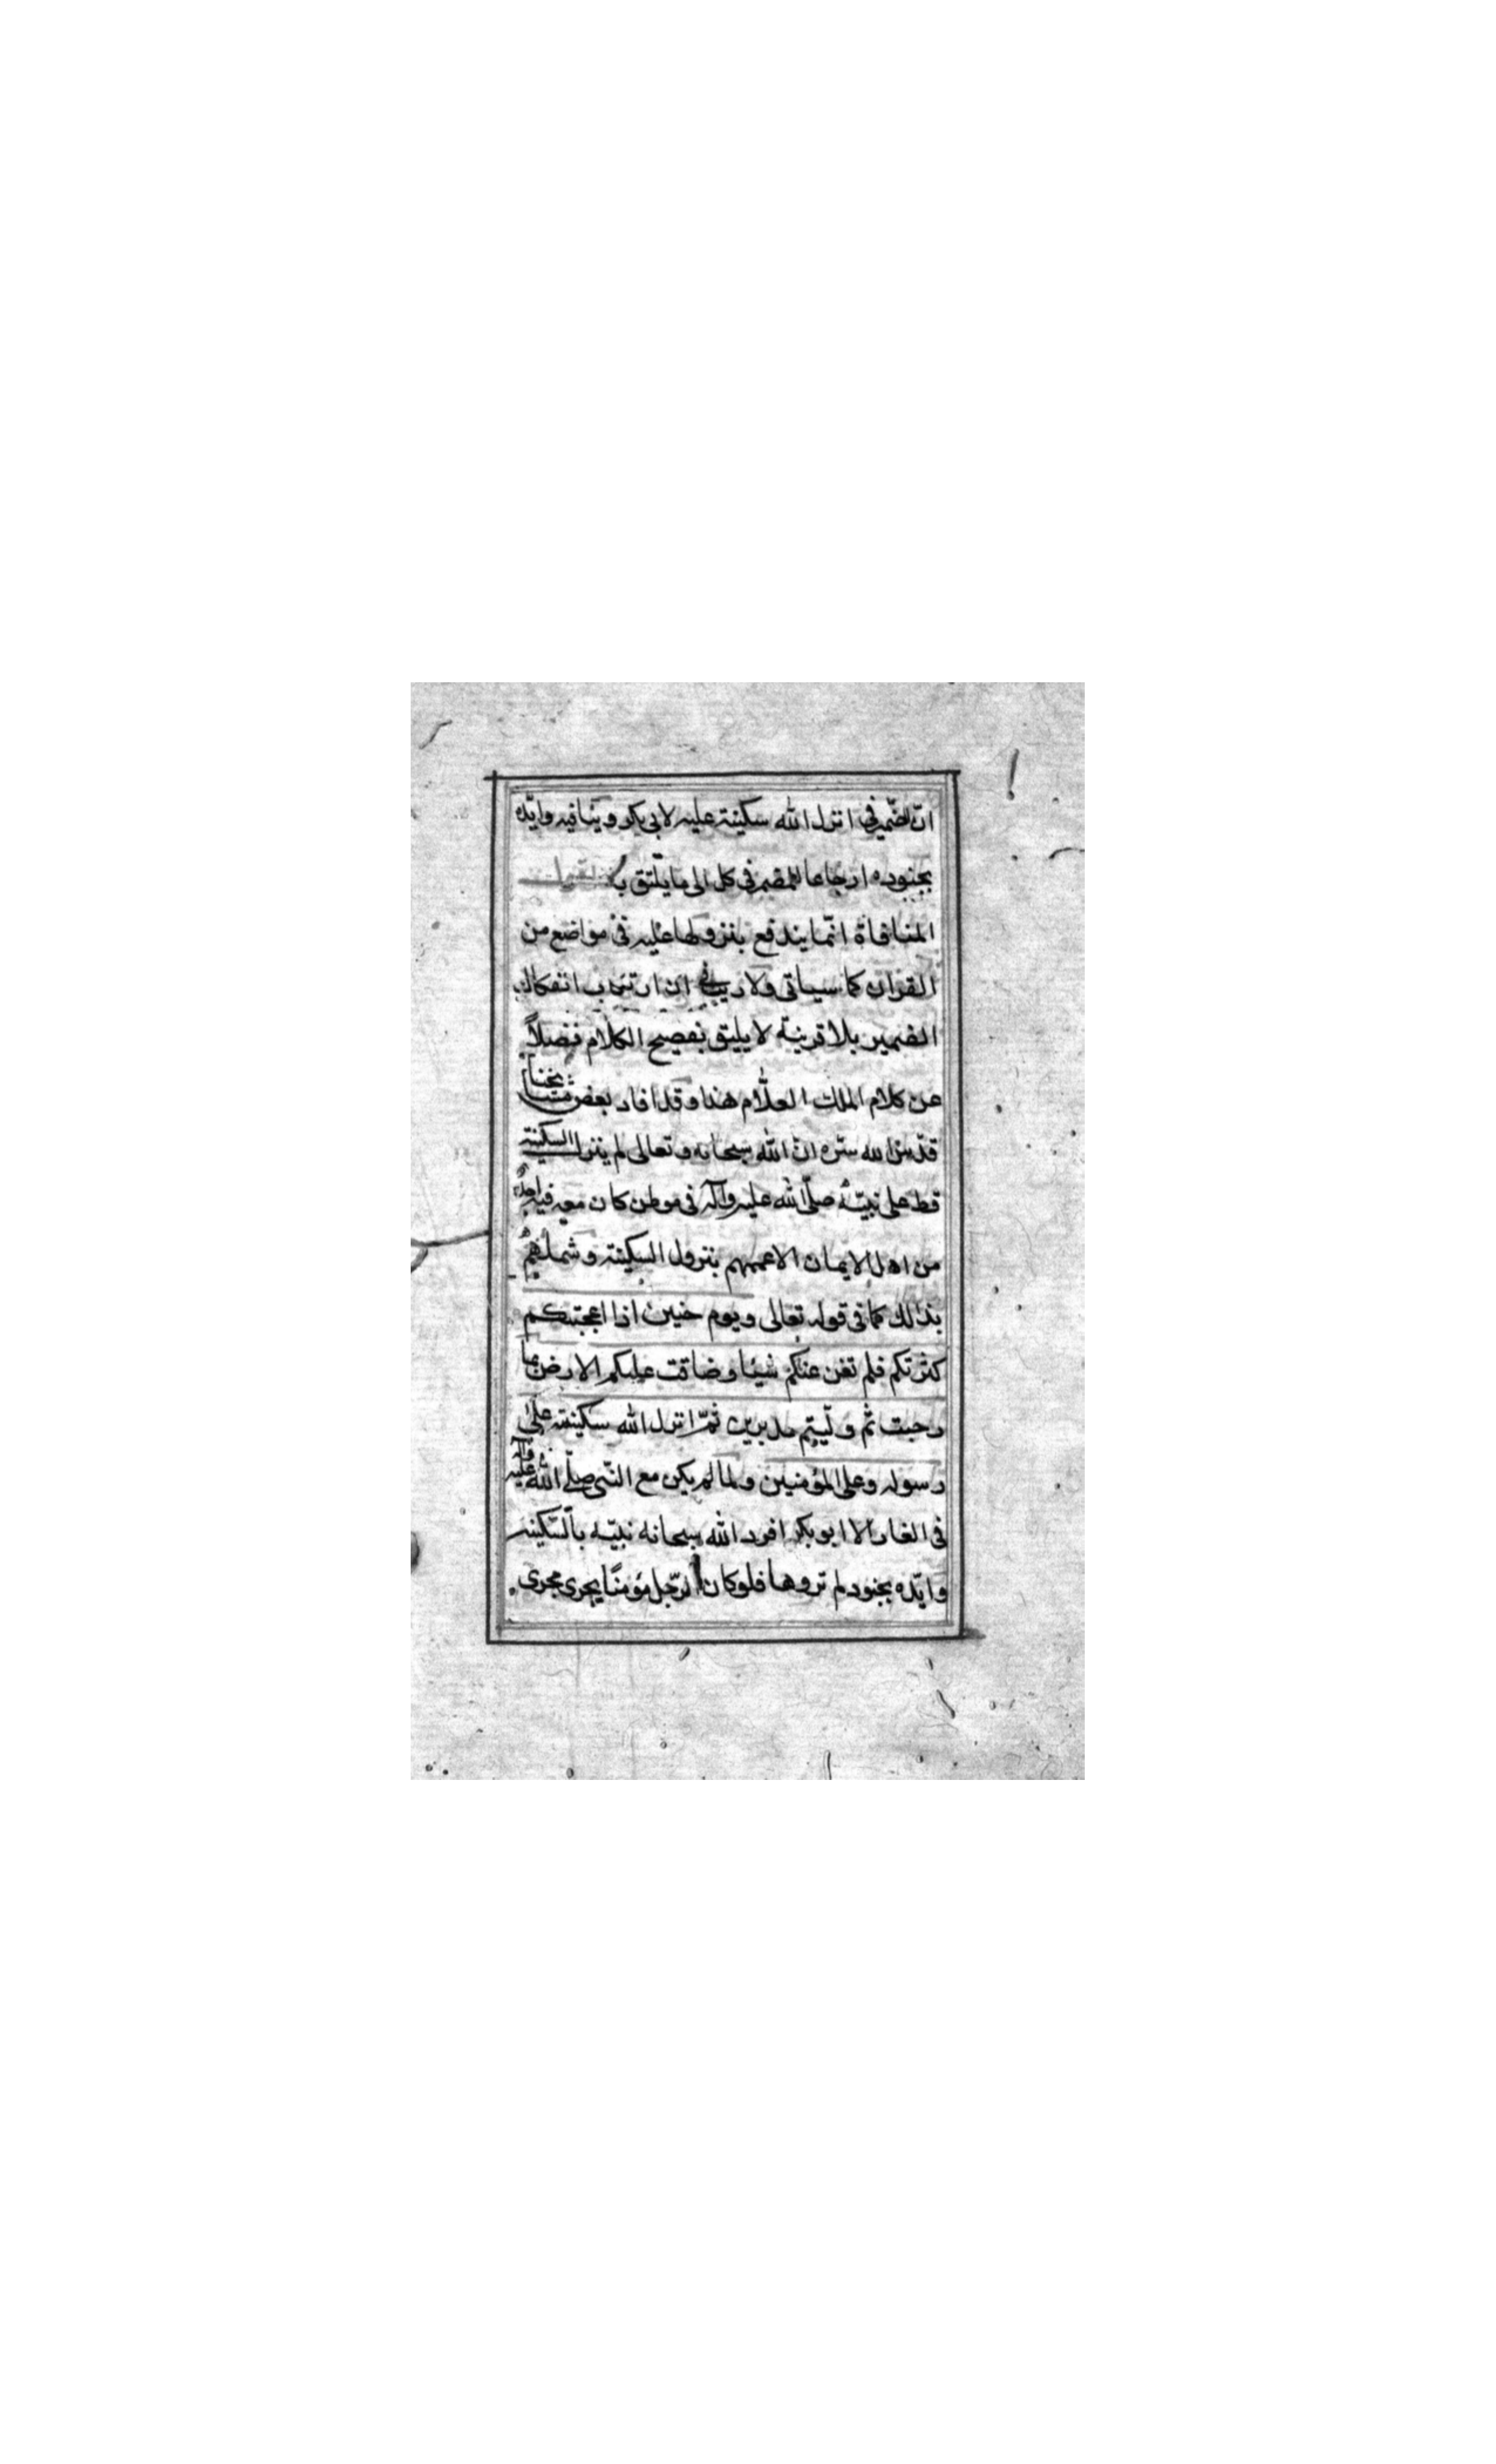 انّ الضّمير فى انزل الله سكينته عليه لابى بكر وينافيه وايّده
بجنوده ارجاعا للمضمر فى كل الى ما يلتق به
المنافاة انّما يندفع بنزولها عليه فى مواضع من
القران كما سياتى ولا ريب فى ان ارتكاب انفكاك
الضمير بلا قرينة لا يليق بفصيح الكلام فضلاً
عن كلام الملك العلّام هذا وقد افاد بعض مشايخنا
قدّس الله سرّه ان الله سبحانه وتعالى لم ينزل السكينة
قط على نبيّه صلّى الله عليه وآله فى موطن كان معه فيه احدٌ
من اهل الايمان الا عمهم بنزول السكينة وشملهم
بذلك كما فى قوله تعالى ويوم حنين اذا اعجبتكم
كثرتكم فلم تغن عنكم شيئا وضاقت عليكم الارض بما
رحبت ثم ولّيتم مدبرين ثمّ انزل الله سكينته على
رسوله وعلى المؤمنين ولما لم يكن مع النّبى صلّى الله عليه وآله
فى الغار الا ابو بكر افرد الله سبحانه نبيّه بالسّكينة
وايّده بجنود لم تروها فلو كان الرّجل مؤمنًا يجرى مجرى